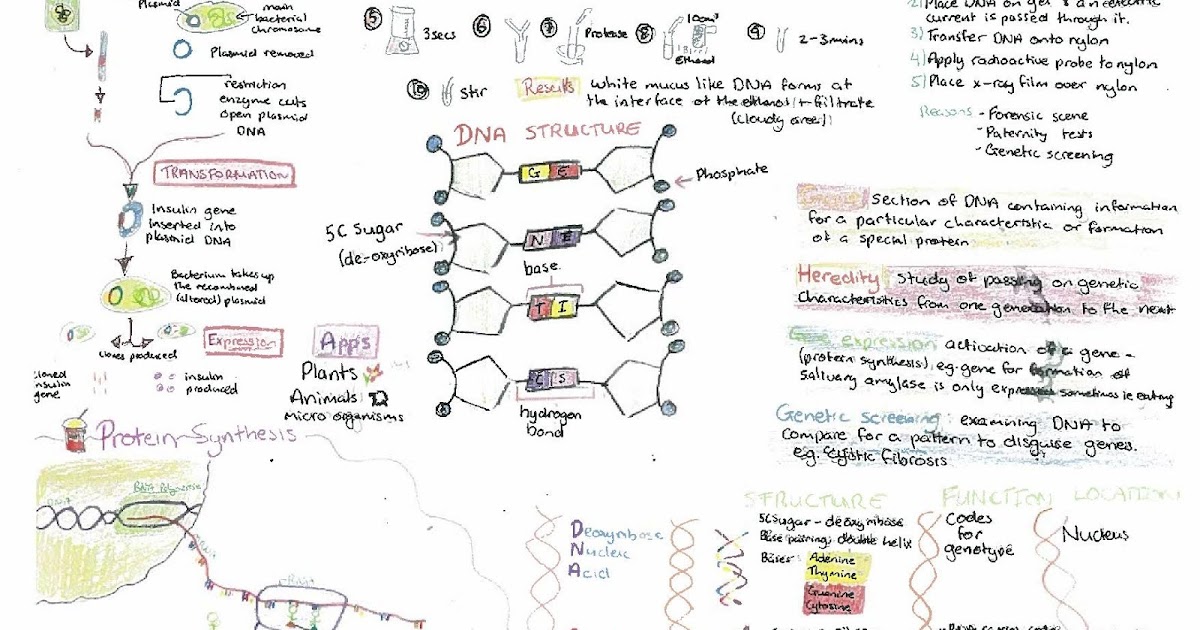 Plasmid
main
bacterial
chromosome
Plasmid removed
restriction
enzyme cuts
open plasmid
DNA
TRANSFORMATION
Insulin gene
inserted into
plasmid DNA
Bacterium takes up
the recombined
(altered) plasmid
Expression
clones produced
insulin
gene
insulin
produced
Apps
Plants
Animals
Micro organisms
5
3secs
6
7
Protease
8
100cm³
Ethanol
2-3mins
10
Stir
Results
white mucus like DNA forms at
the interface of the ethanol + filtrate
(cloudy area)
DNA STRUCTURE
G E
N E
T I
C S
Phosphate
5C Sugar
(de-oxyribose)
base
hydrogen
bond
2) Place DNA on gel & an electric
current is passed through it.
3) Transfer DNA onto nylon
4) Apply radioactive probe to nylon
5) Place x-ray film over nylon
Reasons - Forensic scene
- Paternity tests
- Genetic screening
Section of DNA containing information
for a particular characteristic or formation
of a special protein
Heredity: Study of passing on genetic
characteristics from one generation to the next
expression activation of a gene -
(protein synthesis), eg. gene for formation of
Salivary amylase is only expressed sometimes ie eating
Genetic screening: examining DNA to
compare for a pattern to disguise genes.
e.g. Cystic fibrosis
Protein Synthesis
DNA
RNA Polymerase
mRNA
rRNA
Deoxyribose
Nucleic
Acid
STRUCTURE
FUNCTION
LOCATION
5C Sugar - deoxyribose
Base pairing, double helix
Bases:
Adenine
Thymine
Guanine
Cytosine
Codes
for
genotype
Nucleus